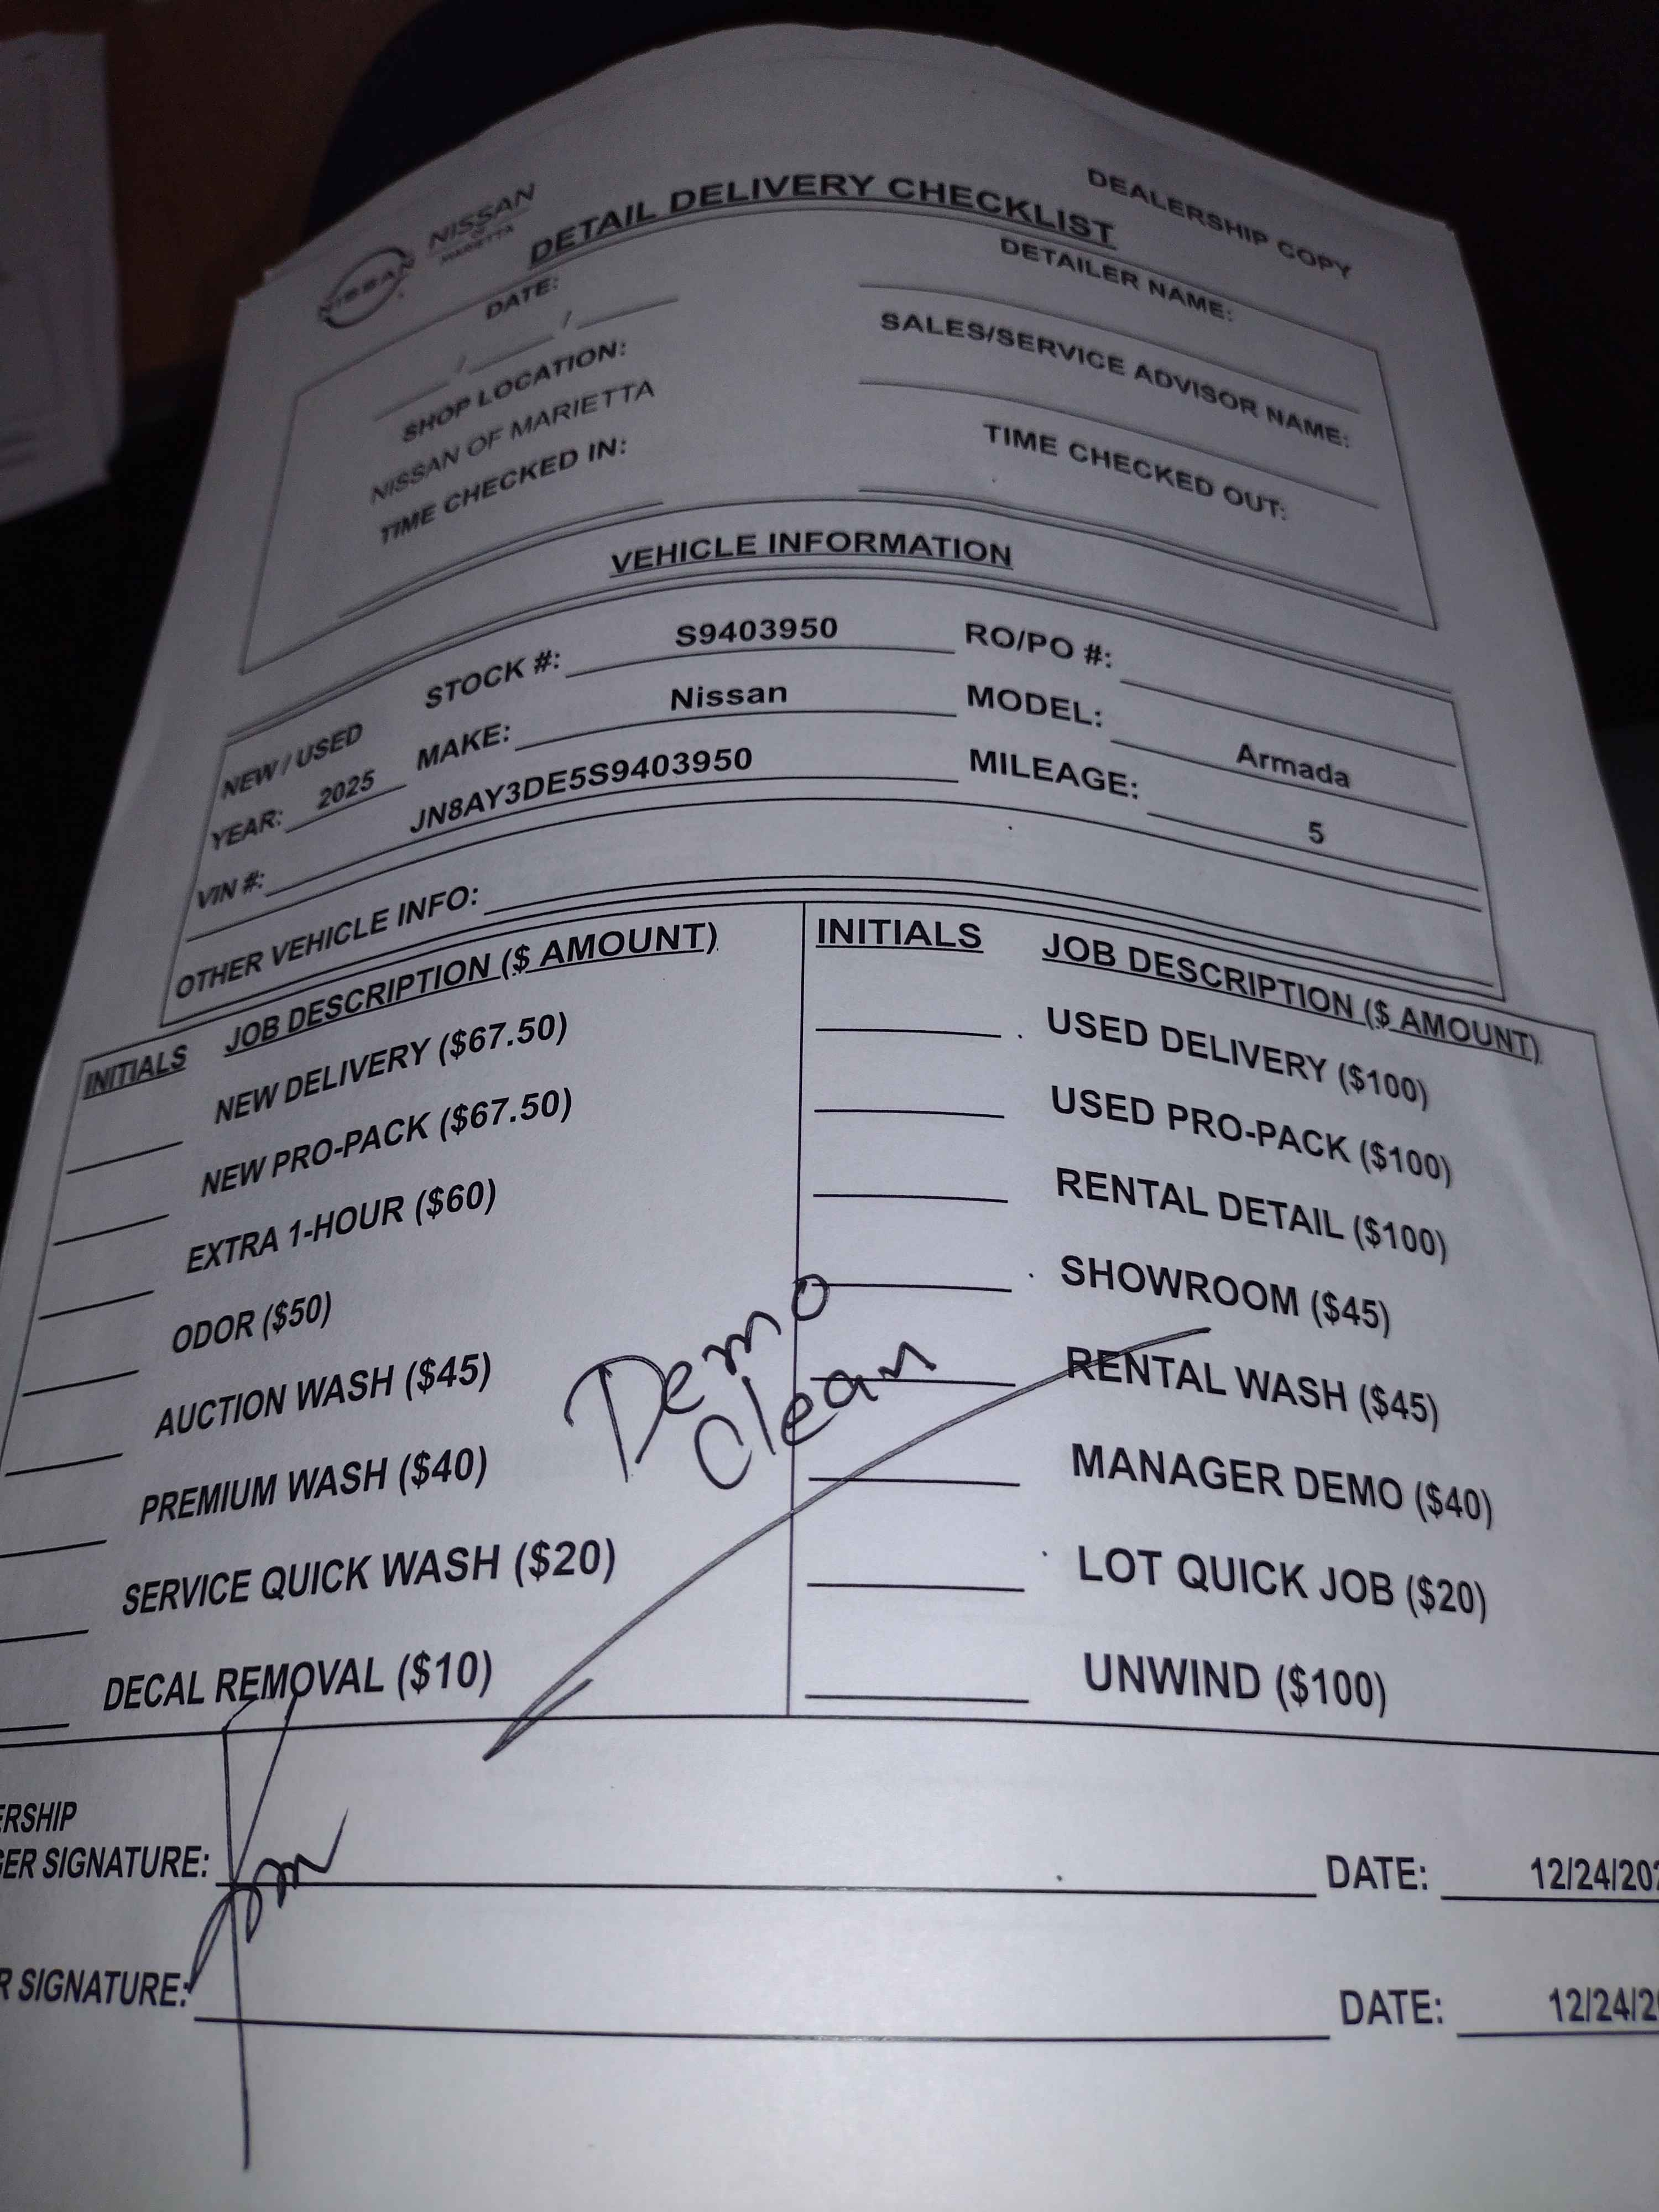 DEALERSHIP COPY
NISSAN
NISSAN
OF
MARIETTA
DETAIL DELIVERY CHECKLIST
DATE:
/ /
DETAILER NAME:
SHOP LOCATION:
NISSAN OF MARIETTA
SALES/SERVICE ADVISOR NAME:
TIME CHECKED IN:
TIME CHECKED OUT:
VEHICLE INFORMATION
NEW / USED STOCK #: S9403950 RO/PO #:
YEAR: 2025 MAKE: Nissan MODEL: Armada
VIN #: JN8AY3DE5S9403950 MILEAGE: 5
OTHER VEHICLE INFO:
INITIALS JOB DESCRIPTION ($ AMOUNT)
NEW DELIVERY ($67.50)
NEW PRO-PACK ($67.50)
EXTRA 1-HOUR ($60)
ODOR ($50)
AUCTION WASH ($45)
PREMIUM WASH ($40)
SERVICE QUICK WASH ($20)
DECAL REMOVAL ($10)
Demo
Clean
INITIALS JOB DESCRIPTION ($ AMOUNT)
USED DELIVERY ($100)
USED PRO-PACK ($100)
RENTAL DETAIL ($100)
SHOWROOM ($45)
RENTAL WASH ($45)
MANAGER DEMO ($40)
LOT QUICK JOB ($20)
UNWIND ($100)
ERSHIP
GER SIGNATURE: DATE: 12/24/202
R SIGNATURE: DATE: 12/24/2